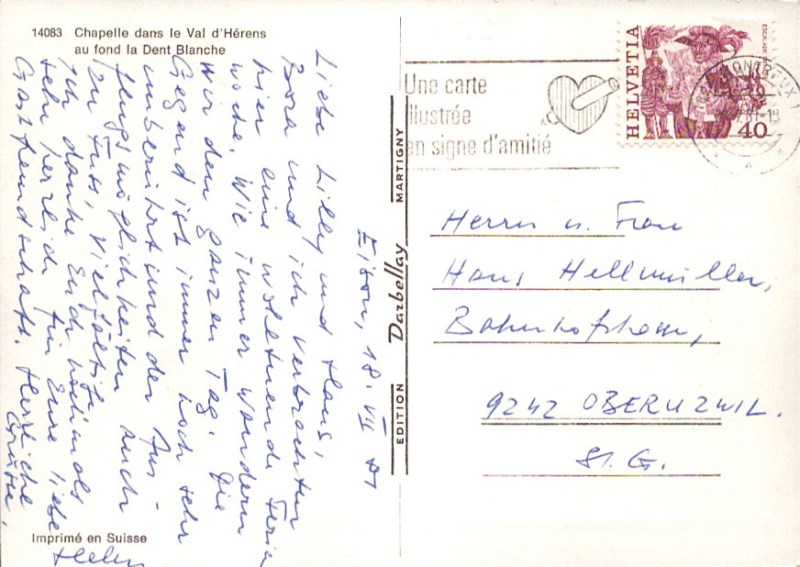 14083 Chapelle dans le Val d'Hérens
au fond la Dent Blanche
Eison, 18. VII 81
Liebe Lilly und Hans,
und ich verbrachten
hier eine wohltuende Ferien
woche. Wie immer wandern
wir den ganzen Tag. Die
Gegend ist immer noch sehr
unberührt und der Aus-
flugsmöglichkeiten auch
zu Fuss, vielfältig.
Ich danke Euch nochmals
sehr herzlich für Eure liebe
Gastfreundschaft. Herzliche
Grüsse,
Helen
Imprimé en Suisse
EDITION Darbellay MARTIGNY
Une carte
illustrée
en signe d'amitié
HELVETIA
40
Herrn u. Frau
Hans Hellmüller,
9242 OBERUZWIL.
St. G.